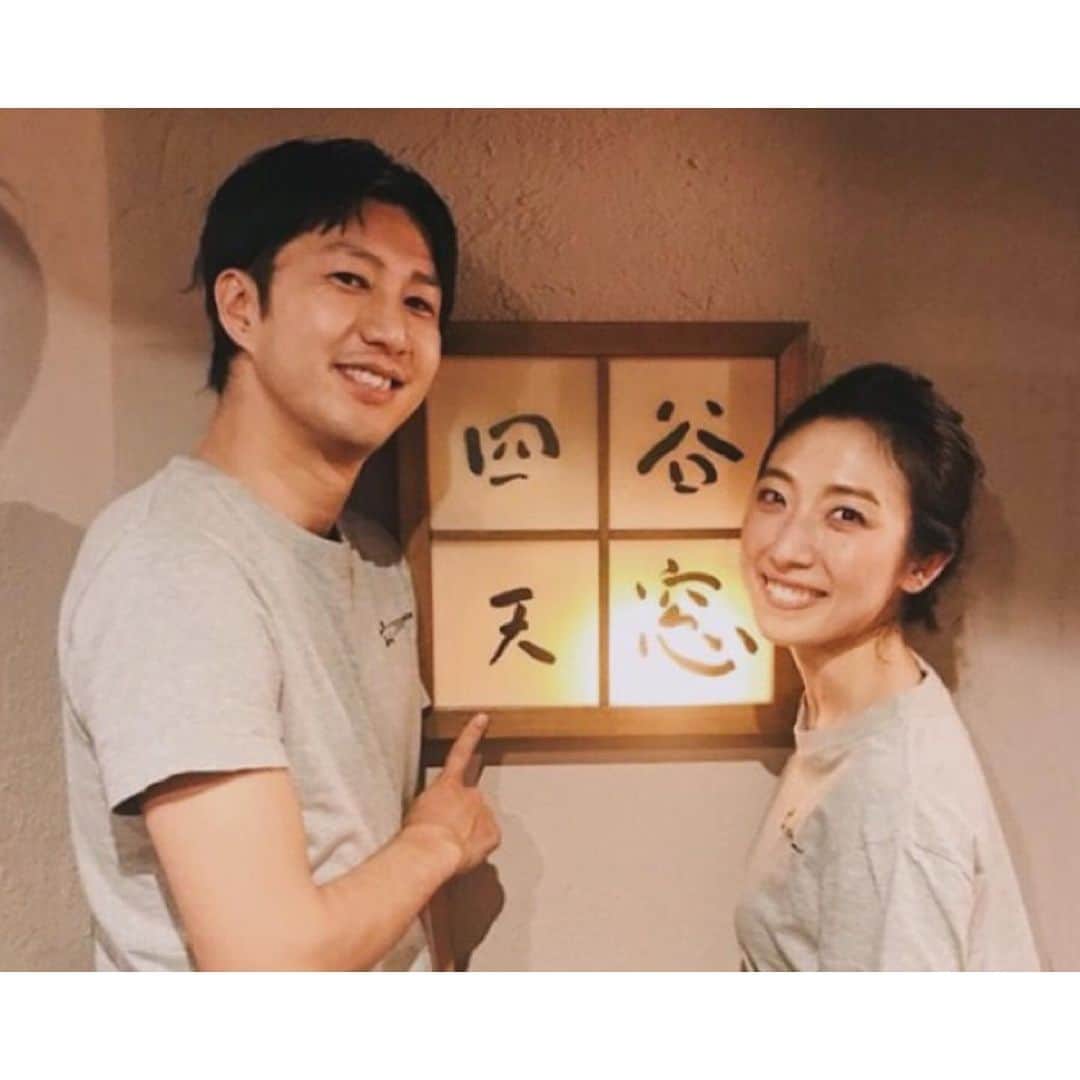 四谷
天窓